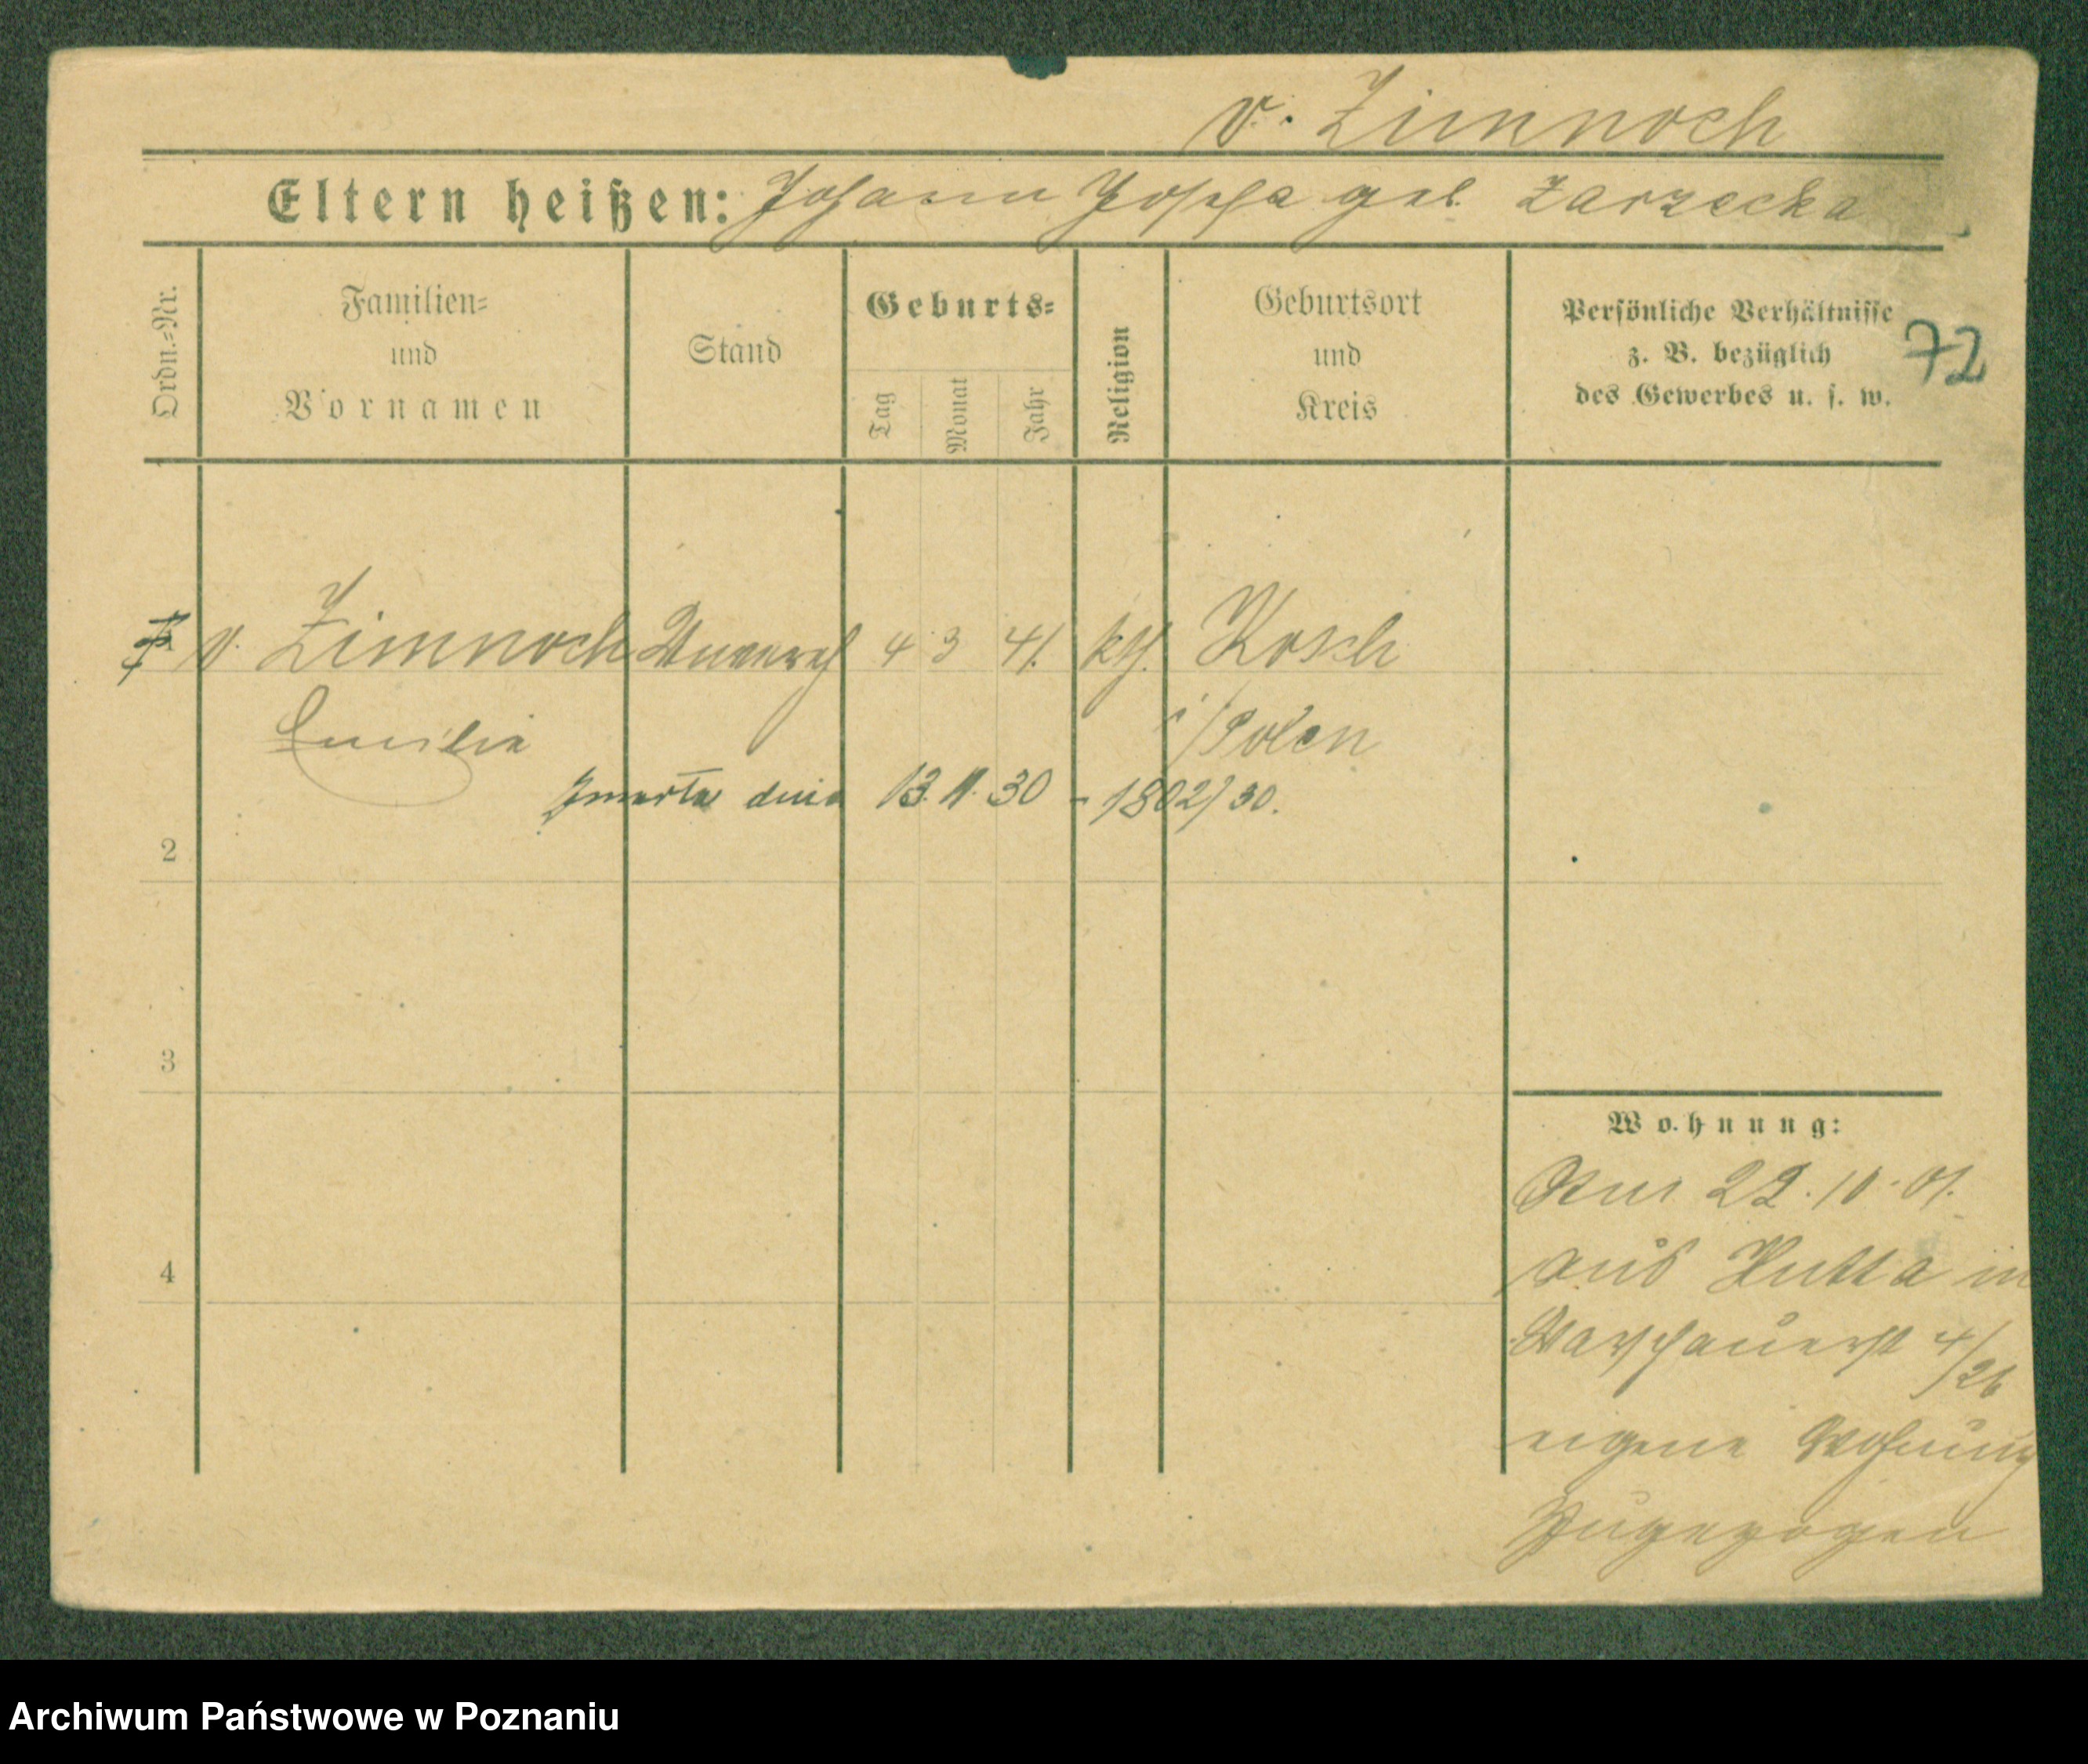 v. Zimnoch
Eltern heißen: Johann Josefa geb. Zarzecka
Ordn.=Nr.
Familien=
und
Vornamen
Stand
Geburts=
Tag
Monat
Jahr
Religion
Geburtsort
und
Kreis
Persönliche Verhältnisse
z. B. bezüglich
des Gewerbes u. s. w.
72
v. Zimnoch 4 3 41. kth. Kosch
Emilie i/Polen
Zmarła dnia 13.11.30 - 1802/30.
2
3
4
Wohnung:
Am 22.10.01.
aus Hutta in
Warschauerst 4/26
eigene Wohnung
zugezogen
Archiwum Państwowe w Poznaniu